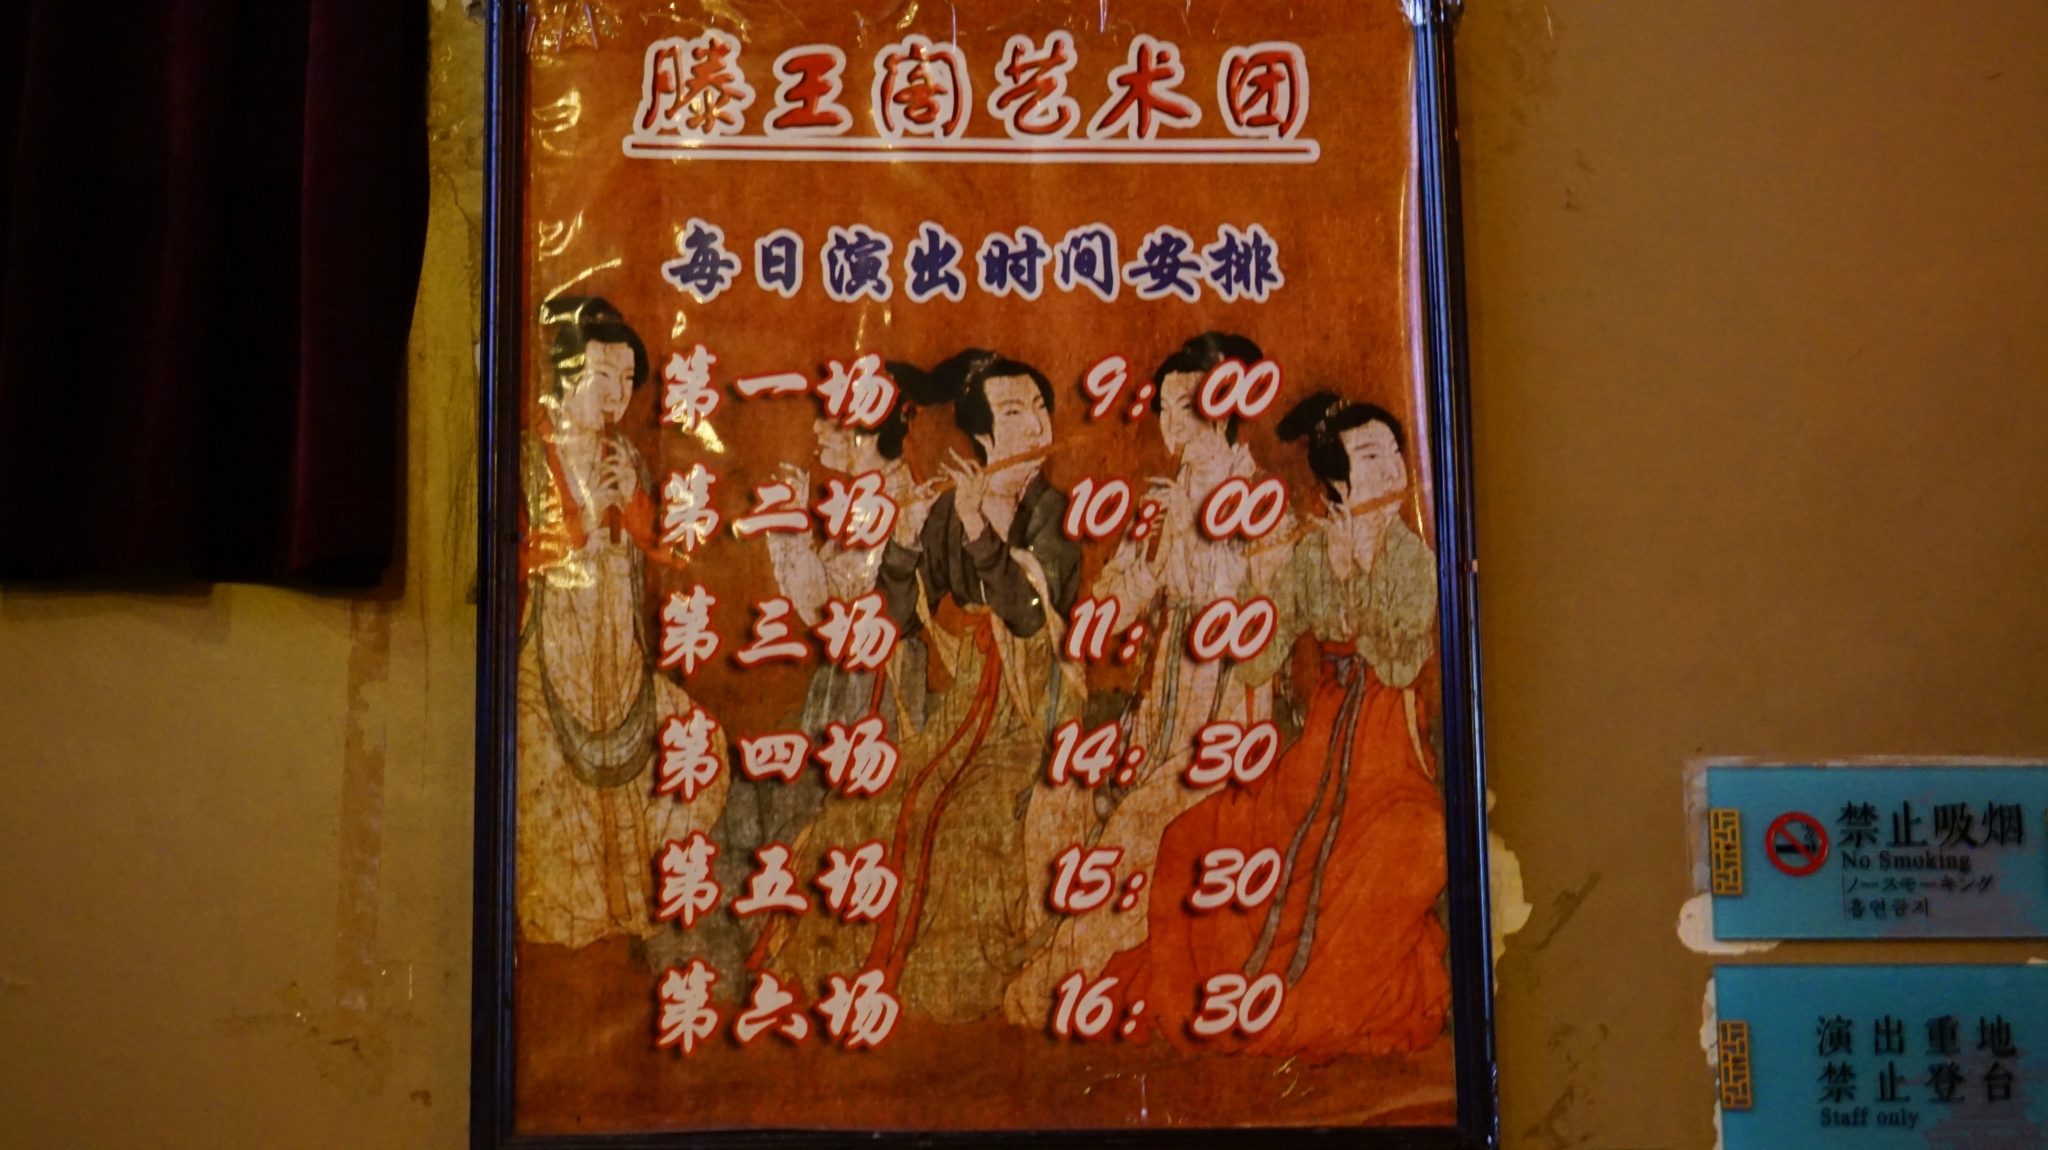 滕王阁艺术团
每日演出时间安排
第一场 9：00
第二场 10：00
第三场 11：00
第四场 14：30
第五场 15：30
第六场 16：30
禁止吸烟
No Smoking
ノースモーキング
흡연금지
演出重地
禁止登台
Staff only